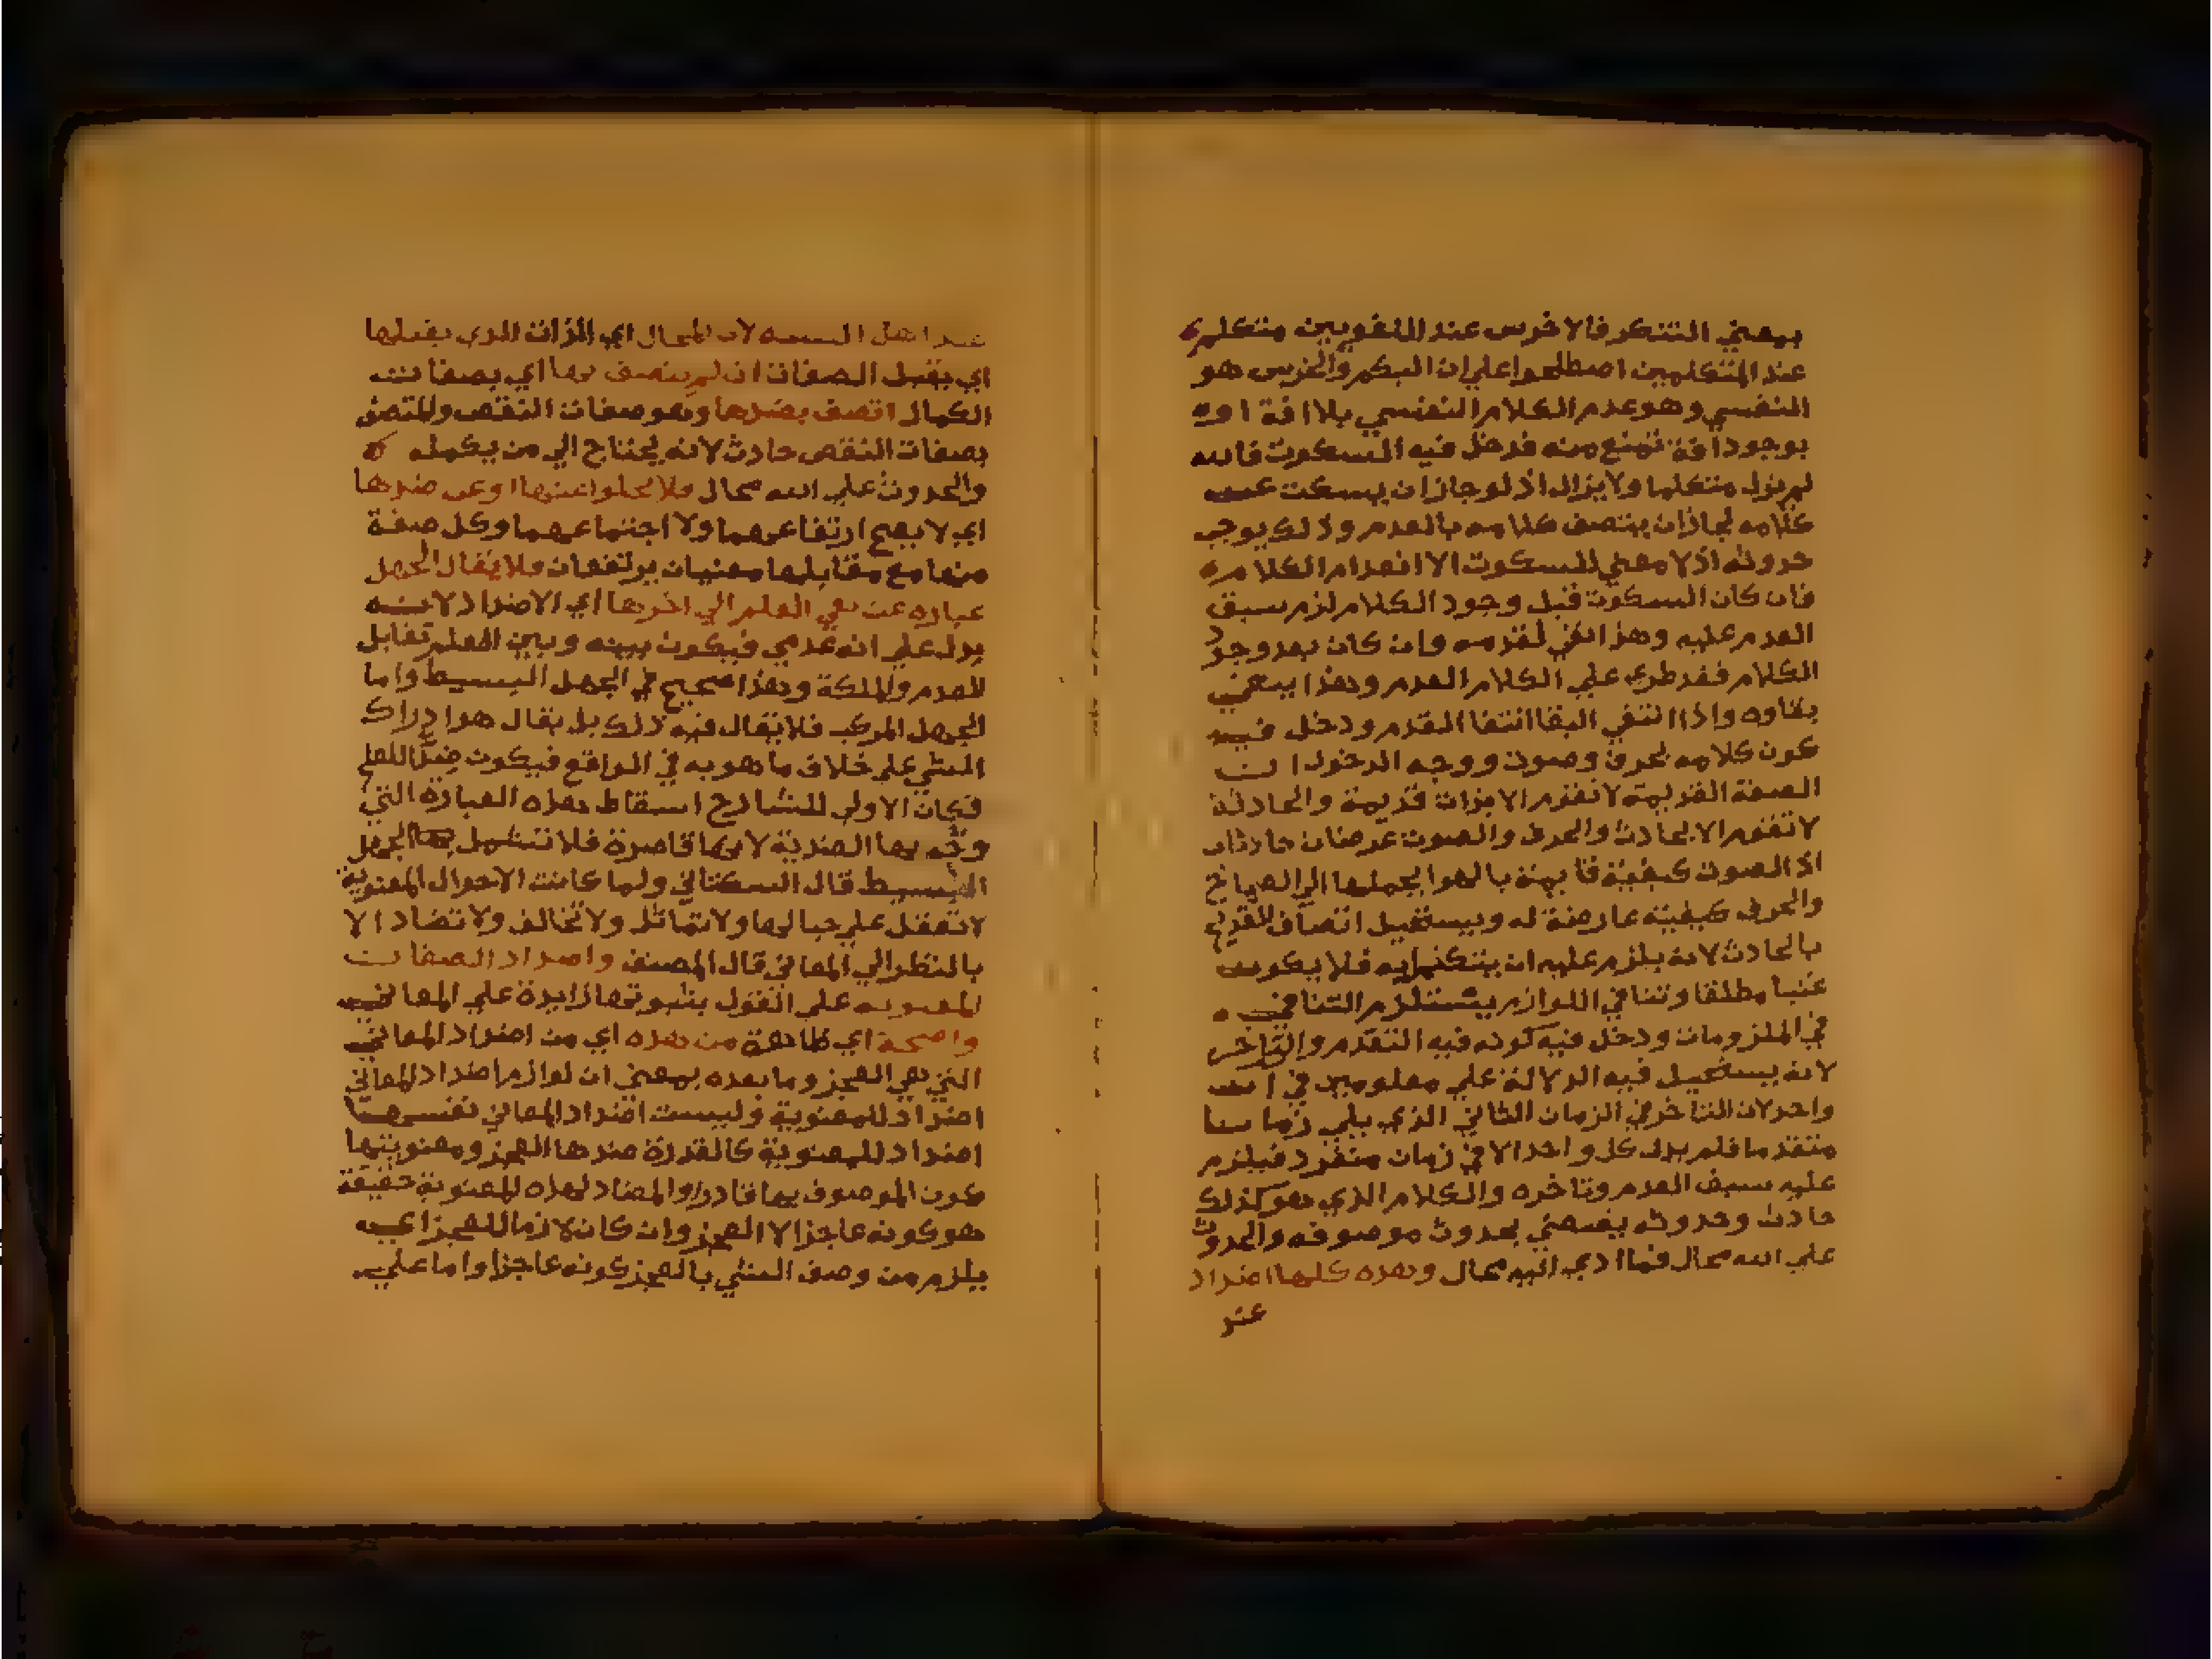 بمعني التنكر فالاخرس عند اللغويين متكلم
عند المتكلمين اصطلحوا علي ان البكم والخرس هو
النفسي وهو عدم الكلام النفسي بلا افة اوه
بوجود افة تمنع منه فدخل فيه السكوت فالله
لم يزل متكلما ولا يزال اذ لو جاز ان يسكت عن
كلامه لجاز ان يتصف كلامه بالعدم وذلك يوجب
حدوثه اذ لا معني للسكوت الا انعدام الكلام
فان كان السكوت قبل وجود الكلام لزم سبق
العدم عليه وهذا نفي لقدمه وان كان بعد وجود
الكلام فقد طري علي الكلام العدم وهذا ينفي
بقاوه واذا انتفي البقا انتفا القدم ودخل فيه
كون كلامه بحرف وصوت ووجه الدخول ان
الصفة القديمة لا تقوم الا بذات قديمة والحادثة
لا تقوم الا بحادث والحرف والصوت عرضان حادثان
اذ الصوت كيفية قايمة بالهوا يحملها الي الصماخ
والحرف كيفية عارضة له ويستحيل اتصاف القديم
بالحادث لانه يلزم عليه ان فلا يكون
غنيا مطلقا وتنافي اللوازم يستلزم التنافي
في الملزومات ودخل فيه كونه فيه التقدم والتاخر
لانه يستحيل فيه الدلالة علي معلومين في ان
واحد لان التاخر في الزمان الثاني الذي يلي زمانا
متقدما فلم يدل كل واحد الا في زمان منفرد فيلزم
عليه سبق العدم وتاخره والكلام الذي هو كذلك
حادث وحدوثه يقتضي بحدوث موصوفه والحدوث
علي الله محال فما ادي اليه محال وهذه كلها اضداد
عند
عند اهل السنه لان المحال اي الذات الذي يقبلها
اي يقبل الصفات ان لم يتصف بها اي بصفات
الكمال اتصف بضدها وهو صفات النقص والمتصف
بصفات النقص حادث لانه يحتاج الي من يكمله
والحدوث علي الله محال فلا يخلوا عنها او عن ضدها
اي لا يصح ارتفاعهما ولا اجتماعهما وكل صفة
منها مع مقابلها معنيان يرتفعان فلا يقال الجهل
عباره عن نفي العلم الي اخرها اي الاضداد لانه
يدل علي انه عدمي فيكون بينه وبين العلم تقابل
العدم والملكة وهذا صحيح في الجهل البسيط واما
الجهل المركب فلا يقال فيه ذلك بل يقال هو ادراك
الشي علي خلاف ما هو به في الواقع فيكون ضدا للعلم
فكان الاولي للشارح اسقاط هذه العبارة التي
وجه بها الضدية لانها قاصرة فلا تشمل الجهل
البسيط قال السكتاني ولما كانت الاحوال المعنوية
لا تعقل علي حيالها ولا تماثل ولا تخالف ولا تضاد الا
بالنظر الي المعاني قال المصنف واضداد الصفات
المعنويه علي القول بثبوتها زايدة علي المعاني
واضحة اي ظاهرة من هذه اي من اضداد المعاني
التي هي العجز وما بعده بمعني ان لوازم اضداد المعاني
اضداد للمعنوية وليست اضداد المعاني نفسها
اضداد للمعنوية كالقدرة ضدها العجز ومعنويتها
كون الموصوف بها قادرا والمضاد لهذه المعنوية حقيقة
هو كونه عاجزا لا العجز وان كان لازما للعجز اي
يلزم من وصف الشي بالعجز كونه عاجزا واما علي